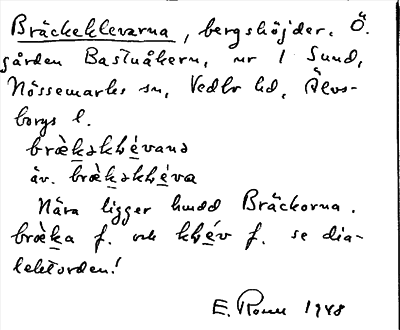 Bräckeklevarna, bergshöjder. Ö.
gården Bastuåkern, nr 1 Sund,
Nössemarks sn, Vedbo hd, Älvs-
borgs l.
bræ̀kəkḷévanə
äv. bræ̀kəkḷéva
Nära ligger hmdd Bräckorna.
bræ̀ka f. och kḷév f. se dia-
lektorden!
E. 1948